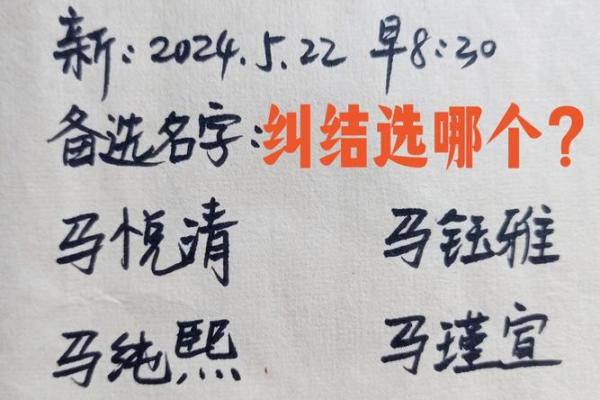 新：2024.5.22 早8：30
备选名字：纠结选哪个？
马悦清 马钰雅
马纯熙 马瑾宣